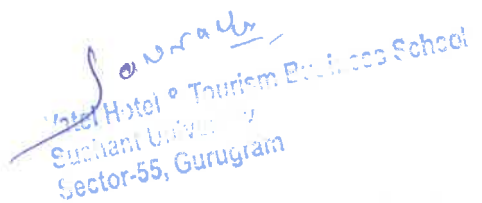 Saurabh
Vatel Hotel & Tourism Business School
Sushant University
Sector-55, Gurugram